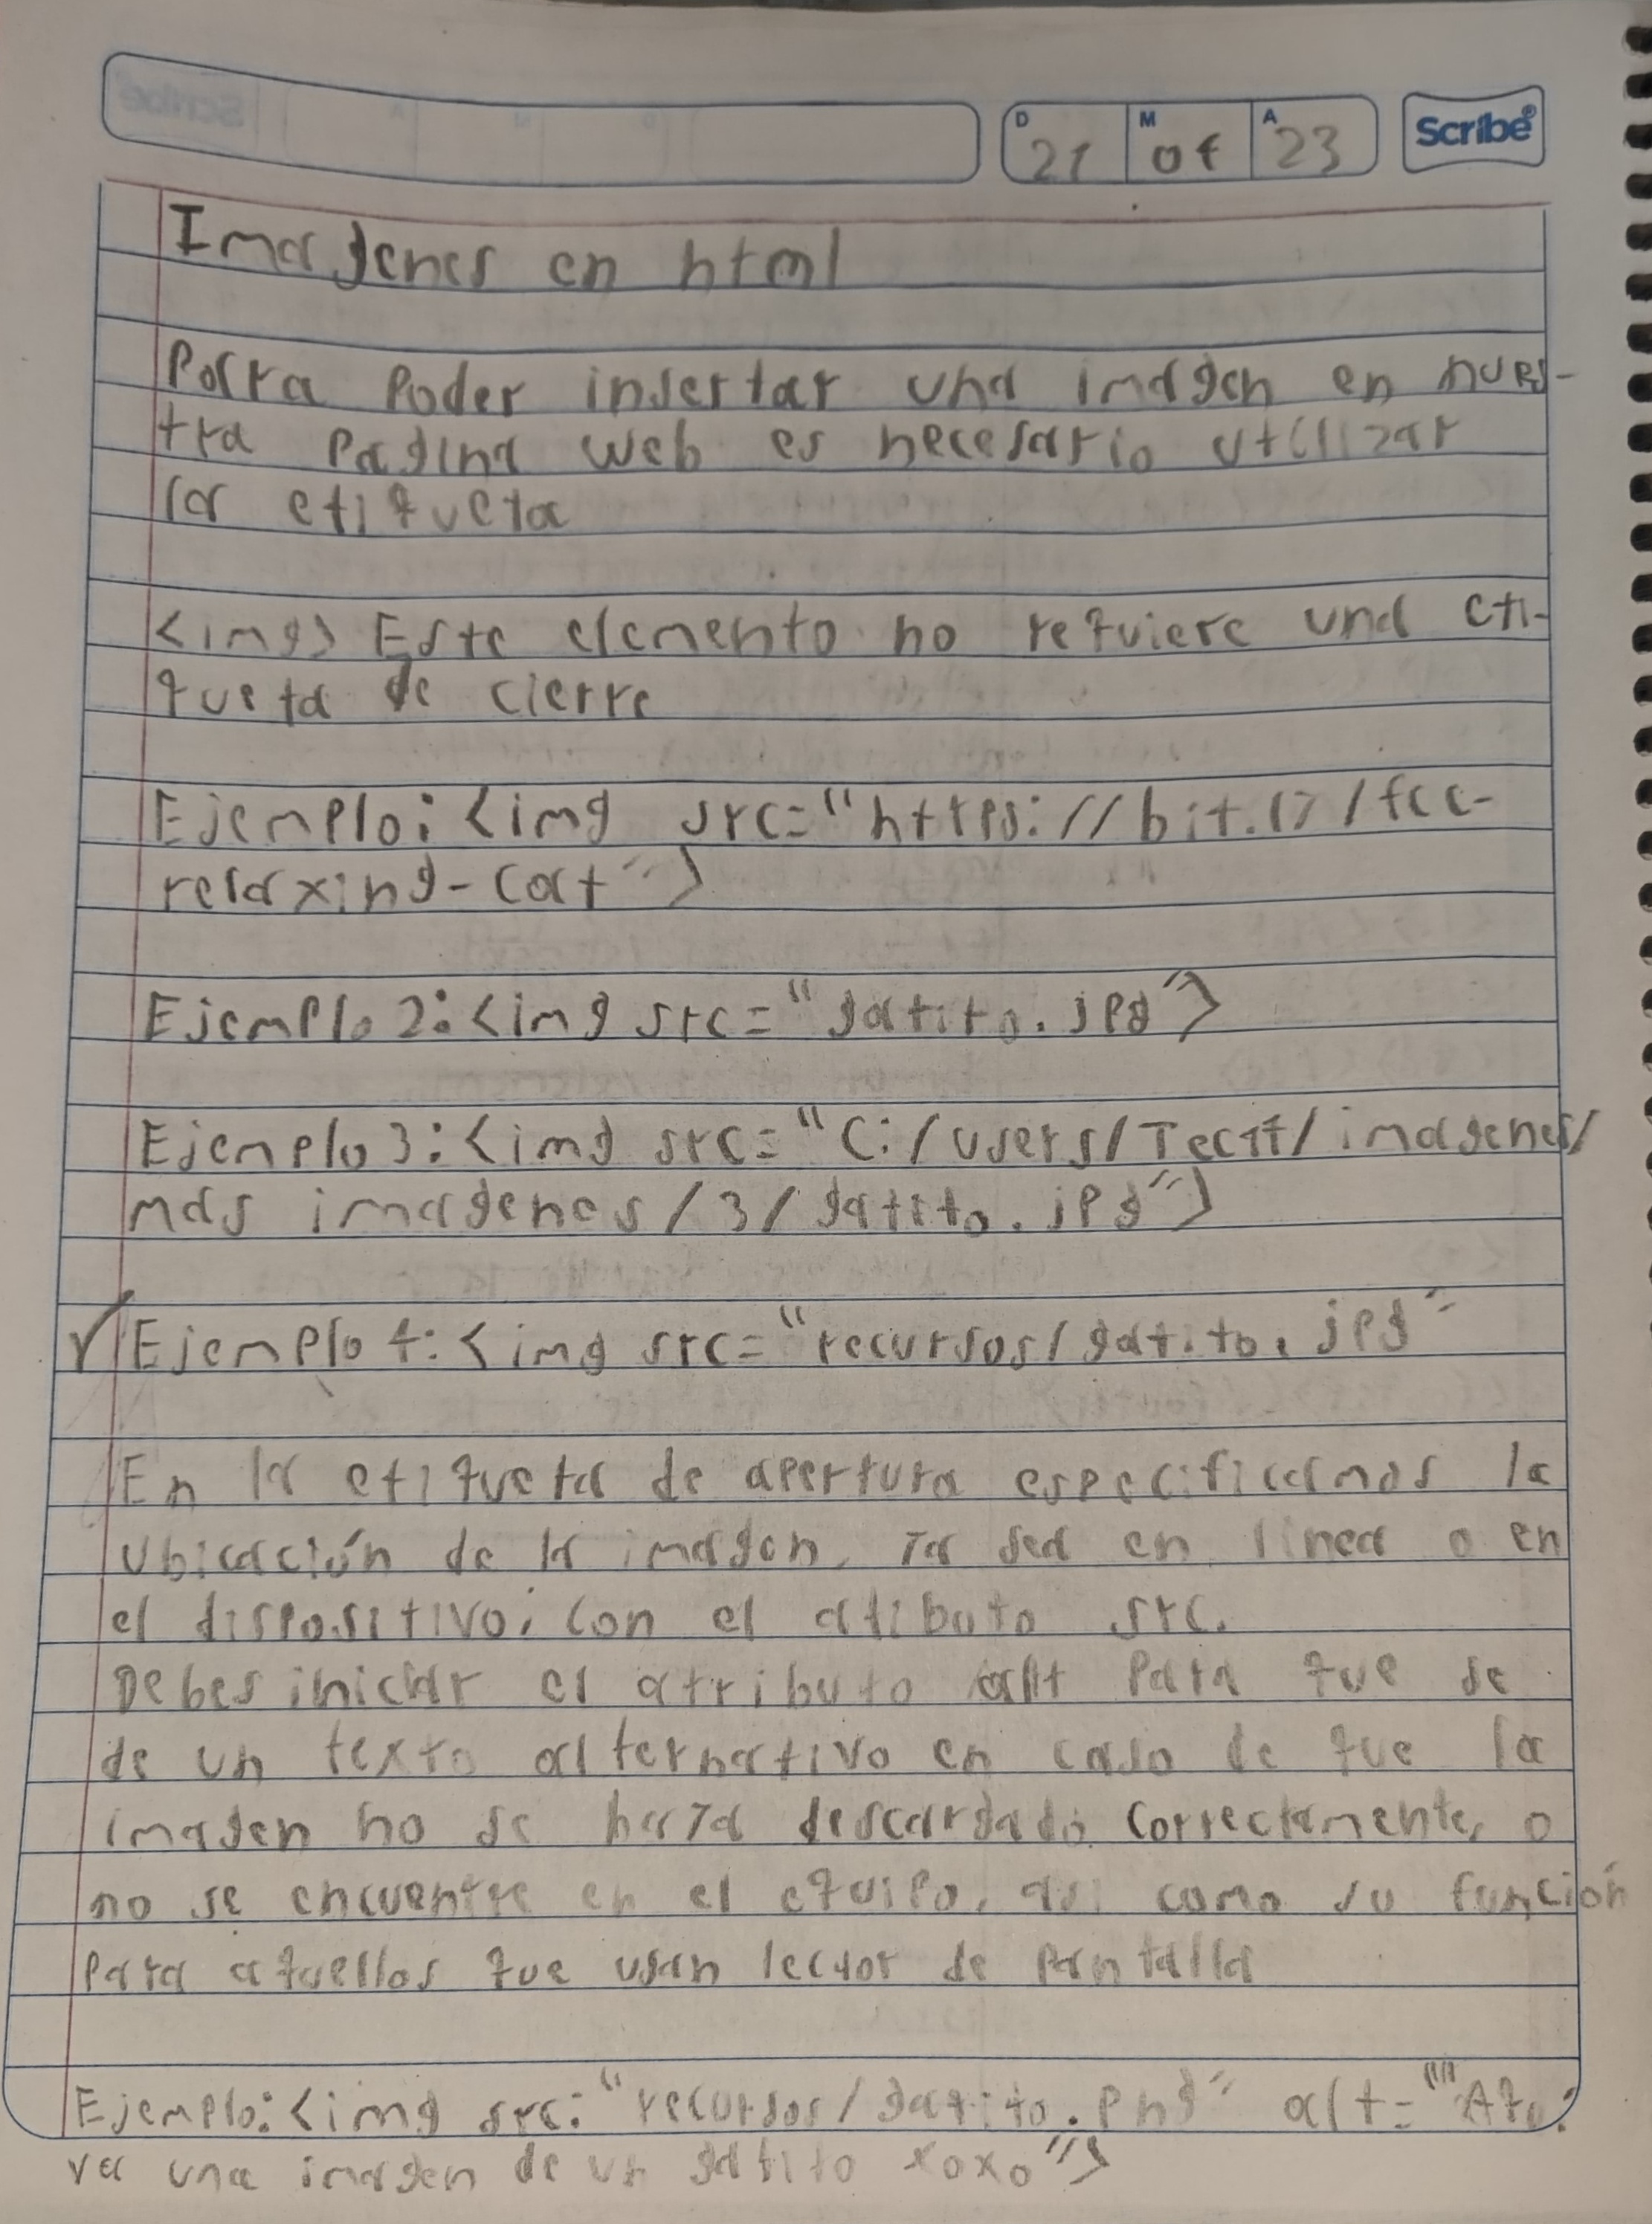 D 21 M 04 A 23 Scribe®
Imagenes en html
Para Poder insertar una imagen en nues-
tra Pagina web es necesario utilizar
la etiqueta
<img> Este elemento no requiere una eti-
queta de cierre
Ejemplo: <img src="https://bit.ly/fcc-
relaxing-cat">
Ejemplo 2: <img src="gatito.jpg">
Ejemplo 3: <img src="C:/users/Tec17/imagenes/
mas imagenes/3/gatito.jpg">
✓ Ejemplo 4: <img src="recursos/gatito.jpg"
En la etiqueta de apertura especificamos la
ubicación de la imagen, ya sea en linea o en
el dispositivo, con el atibuto src.
Debes iniciar el atributo alt Para que se
de un texto alternativo en caso de que la
imagen no se haya descargado correctamente, o
no se encuentre en el equipo, asi como su función
Para aquellos que usan lector de pantalla
Ejemplo: <img src:"recursos/gatito.png" alt=""Aqui
va una imagen de un gatito xoxo">